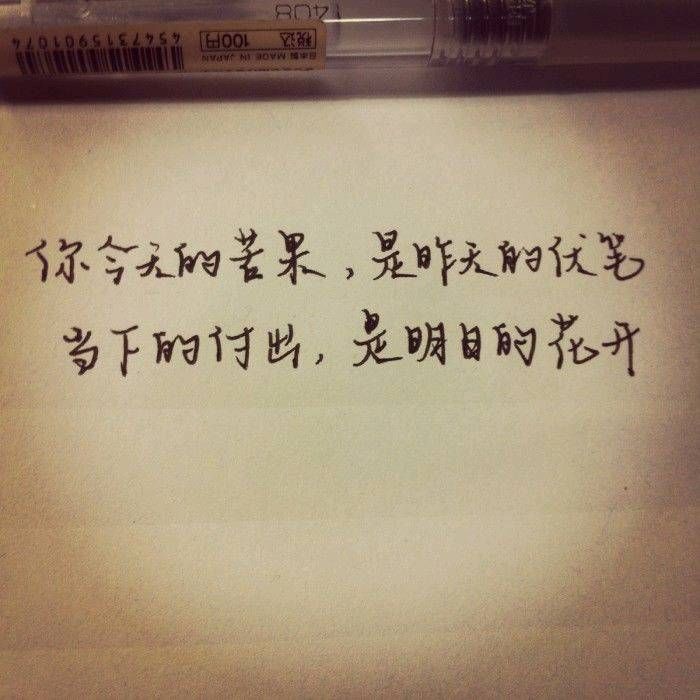 408
税込 100円 日本製 MADE IN JAPAN
4547315901074
你今天的苦果，是昨天的伏笔
当下的付出，是明日的花开